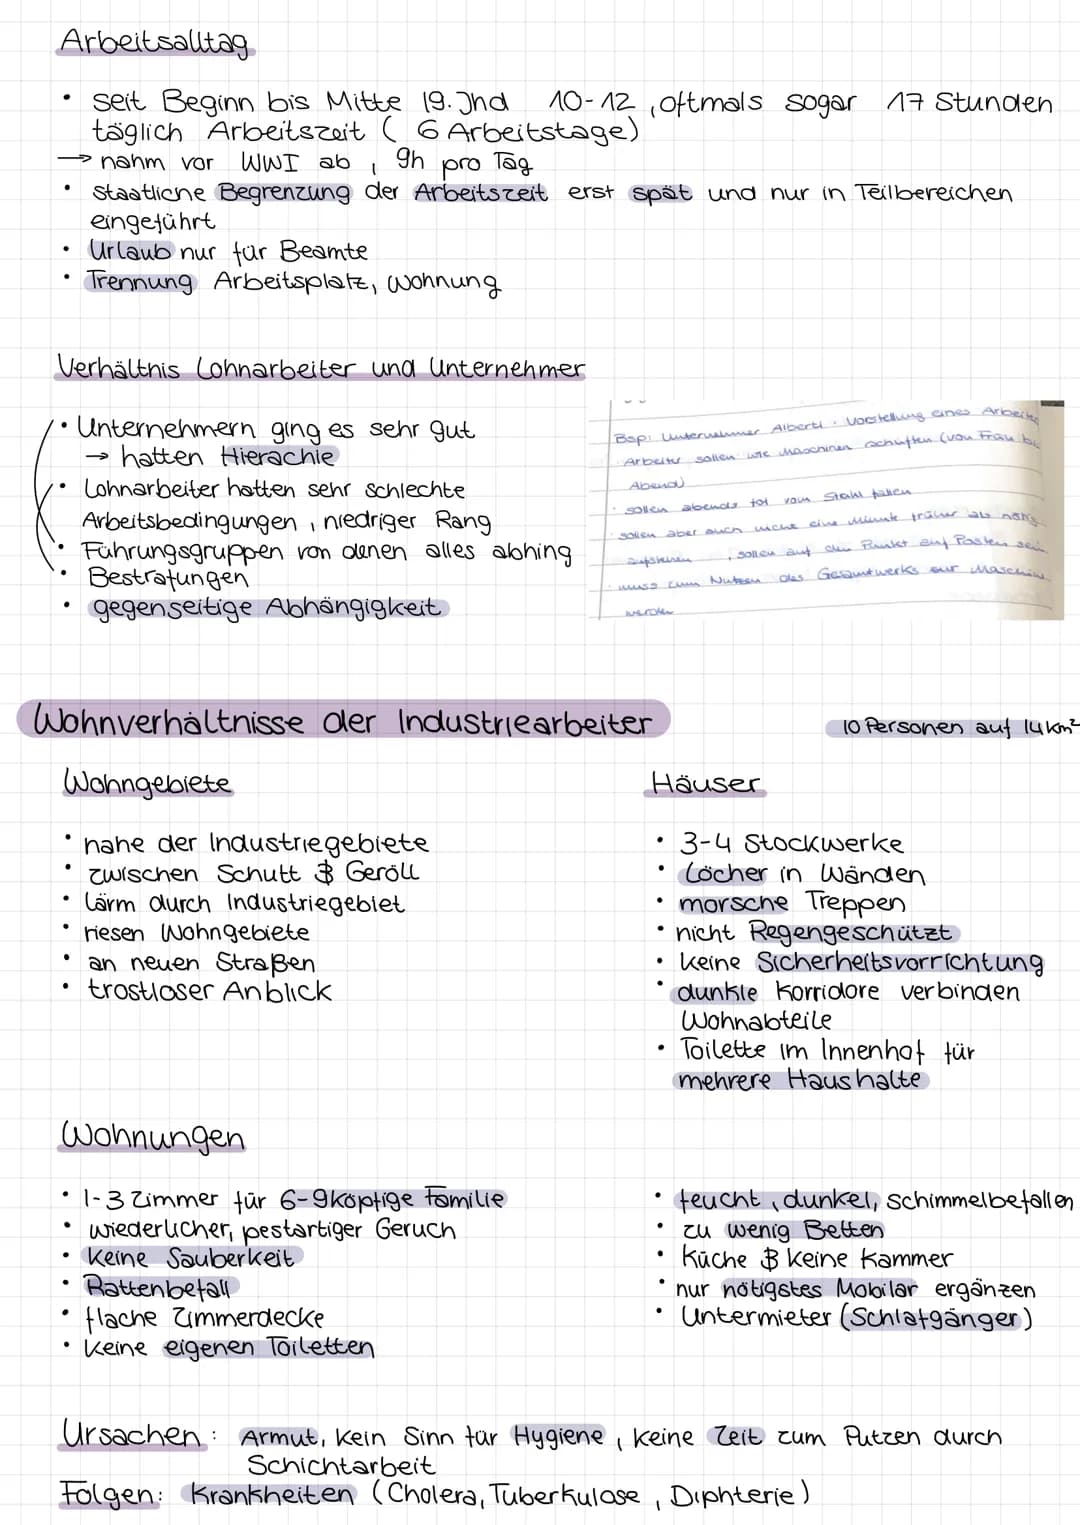 Arbeitsalltag
• seit Beginn bis Mitte 19. Jhd 10-12, oftmals sogar 17 Stunden
täglich Arbeitszeit (6 Arbeitstage)
→ nahm vor WWI ab, 9h pro Tag
• staatliche Begrenzung der Arbeitszeit erst spät und nur in Teilbereichen
eingeführt
• Urlaub nur für Beamte
• Trennung Arbeitsplatz, Wohnung
Verhältnis Lohnarbeiter und Unternehmer
• Unternehmern ging es sehr gut
→ hatten Hierachie
• Lohnarbeiter hatten sehr schlechte
Arbeitsbedingungen, niedriger Rang
• Führungsgruppen von denen alles abhing
• Bestrafungen
• gegenseitige Abhängigkeit
Bsp: Unternehmer Alberti: Vorstellung eines Arbeiter
Arbeiter sollen wie Maschinen schuften (von Früh bis
Abend)
sollen abends tot vom Stahl fallen
sollen aber auch nicht eine Minute früher als nötig
aufstehen, sollen auf den Punkt auf Posten sein
muss zum Nutzen des Gesamtwerks zur Maschine
werden
Wohnverhältnisse der Industriearbeiter
10 Personen auf 14km²
Wohngebiete
• nahe der Industriegebiete
• zwischen Schutt & Geröll
• Lärm durch Industriegebiet
• riesen Wohngebiete
• an neuen Straßen
• trostloser Anblick
Häuser
• 3-4 Stockwerke
• Löcher in Wänden
• morsche Treppen
• nicht Regengeschützt
• keine Sicherheitsvorrichtung
• dunkle Korridore verbinden
Wohnabteile
• Toilette im Innenhof für
mehrere Haushalte
Wohnungen
• 1-3 Zimmer für 6-9köpfige Familie
• wiederlicher, pestartiger Geruch
• Keine Sauberkeit
• Rattenbefall
• flache Zimmerdecke
• Keine eigenen Toiletten
• feucht, dunkel, schimmelbefallen
• zu wenig Betten
• Küche & keine Kammer
• nur nötigstes Mobilar ergänzen
• Untermieter (Schlafgänger)
Ursachen: Armut, kein Sinn für Hygiene, keine Zeit zum Putzen durch
Schichtarbeit
Folgen: Krankheiten (Cholera, Tuberkulose, Diphterie)